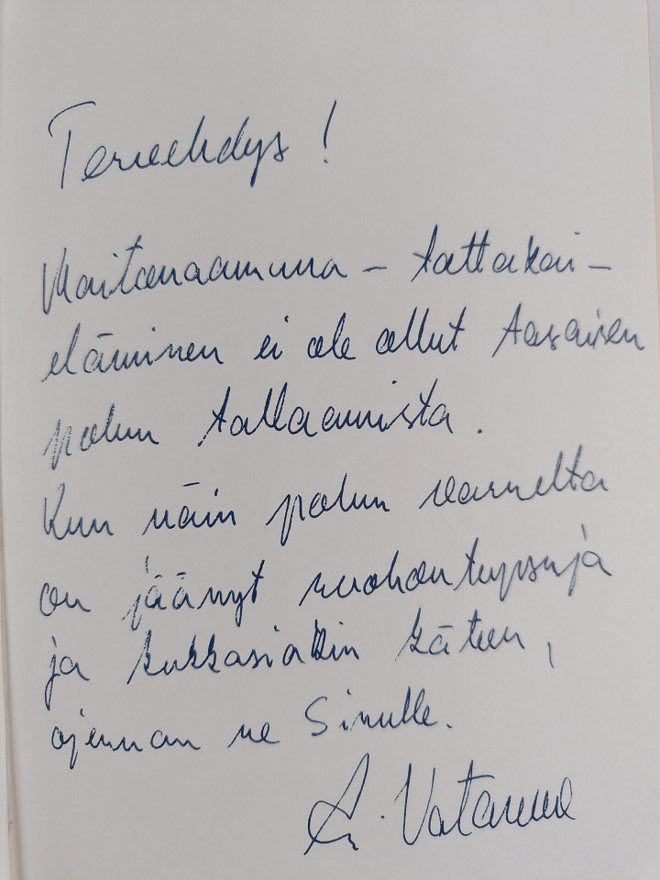 Tervehdys!
Maitonaamuna - tattakai-
eläminen ei ole ollut tasaisen
polun tallaamista.
Kun näin polun varrelta
on jäänyt ruohontupsuja
ja kukkasiakin käteen,
ojennan ne Sinulle.
Vatanen